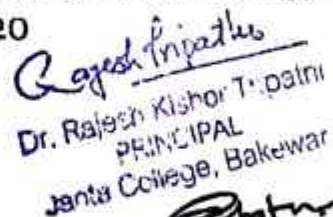 20
Rajesh Tripathi
Dr. Rajesh Kishor Tripathi
PRINCIPAL
Janta College, Bakewar